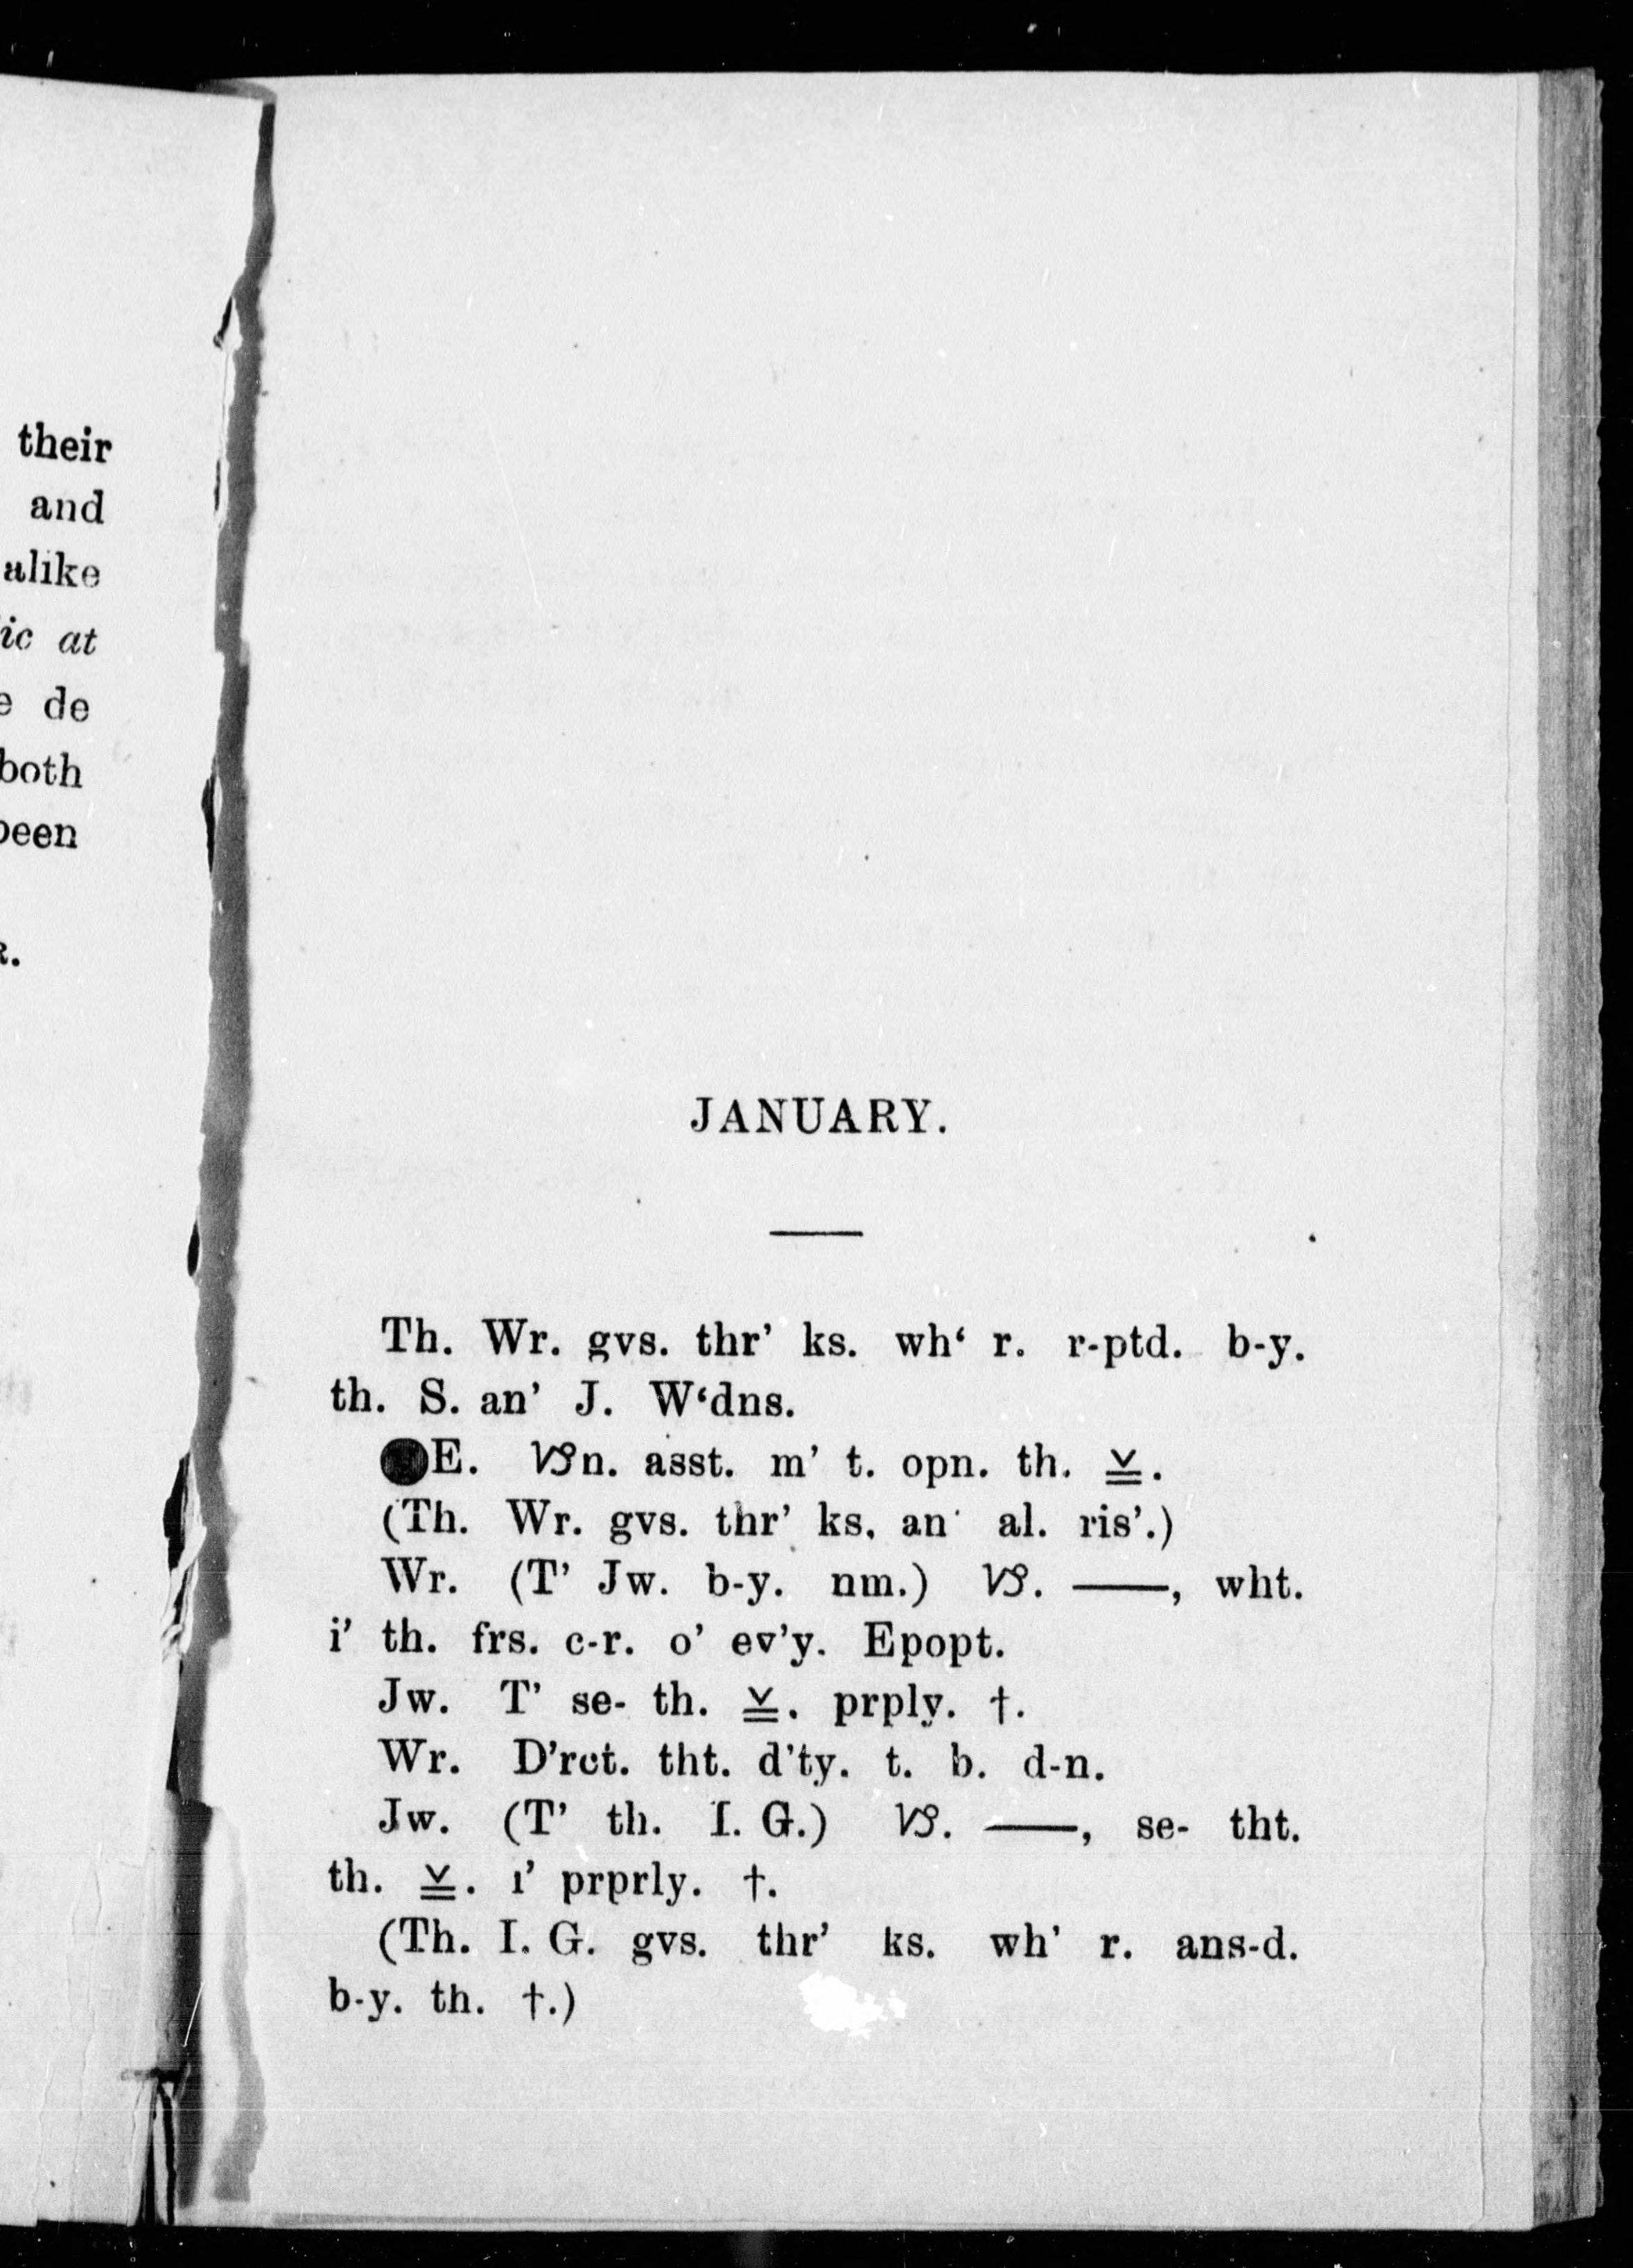 their
and
alike
ic at
e de
both
been
R.
JANUARY.
Th. Wr. gvs. thr’ ks. wh‘ r. r-ptd. b-y.
th. S. an’ J. W‘dns.
E. ♑n. asst. m’ t. opn. th. ⊻.
(Th. Wr. gvs. thr’ ks. an’ al. ris’.)
Wr. (T’ Jw. b-y. nm.) ♑. ——, wht.
i’ th. frs. c-r. o’ ev’y. Epopt.
Jw. T’ se- th. ⊻. prply. †.
Wr. D’rct. tht. d’ty. t. b. d-n.
Jw. (T’ th. I. G.) ♑. ——, se- tht.
th. ⊻. i’ prprly. †.
(Th. I. G. gvs. thr’ ks. wh’ r. ans-d.
b-y. th. †.)